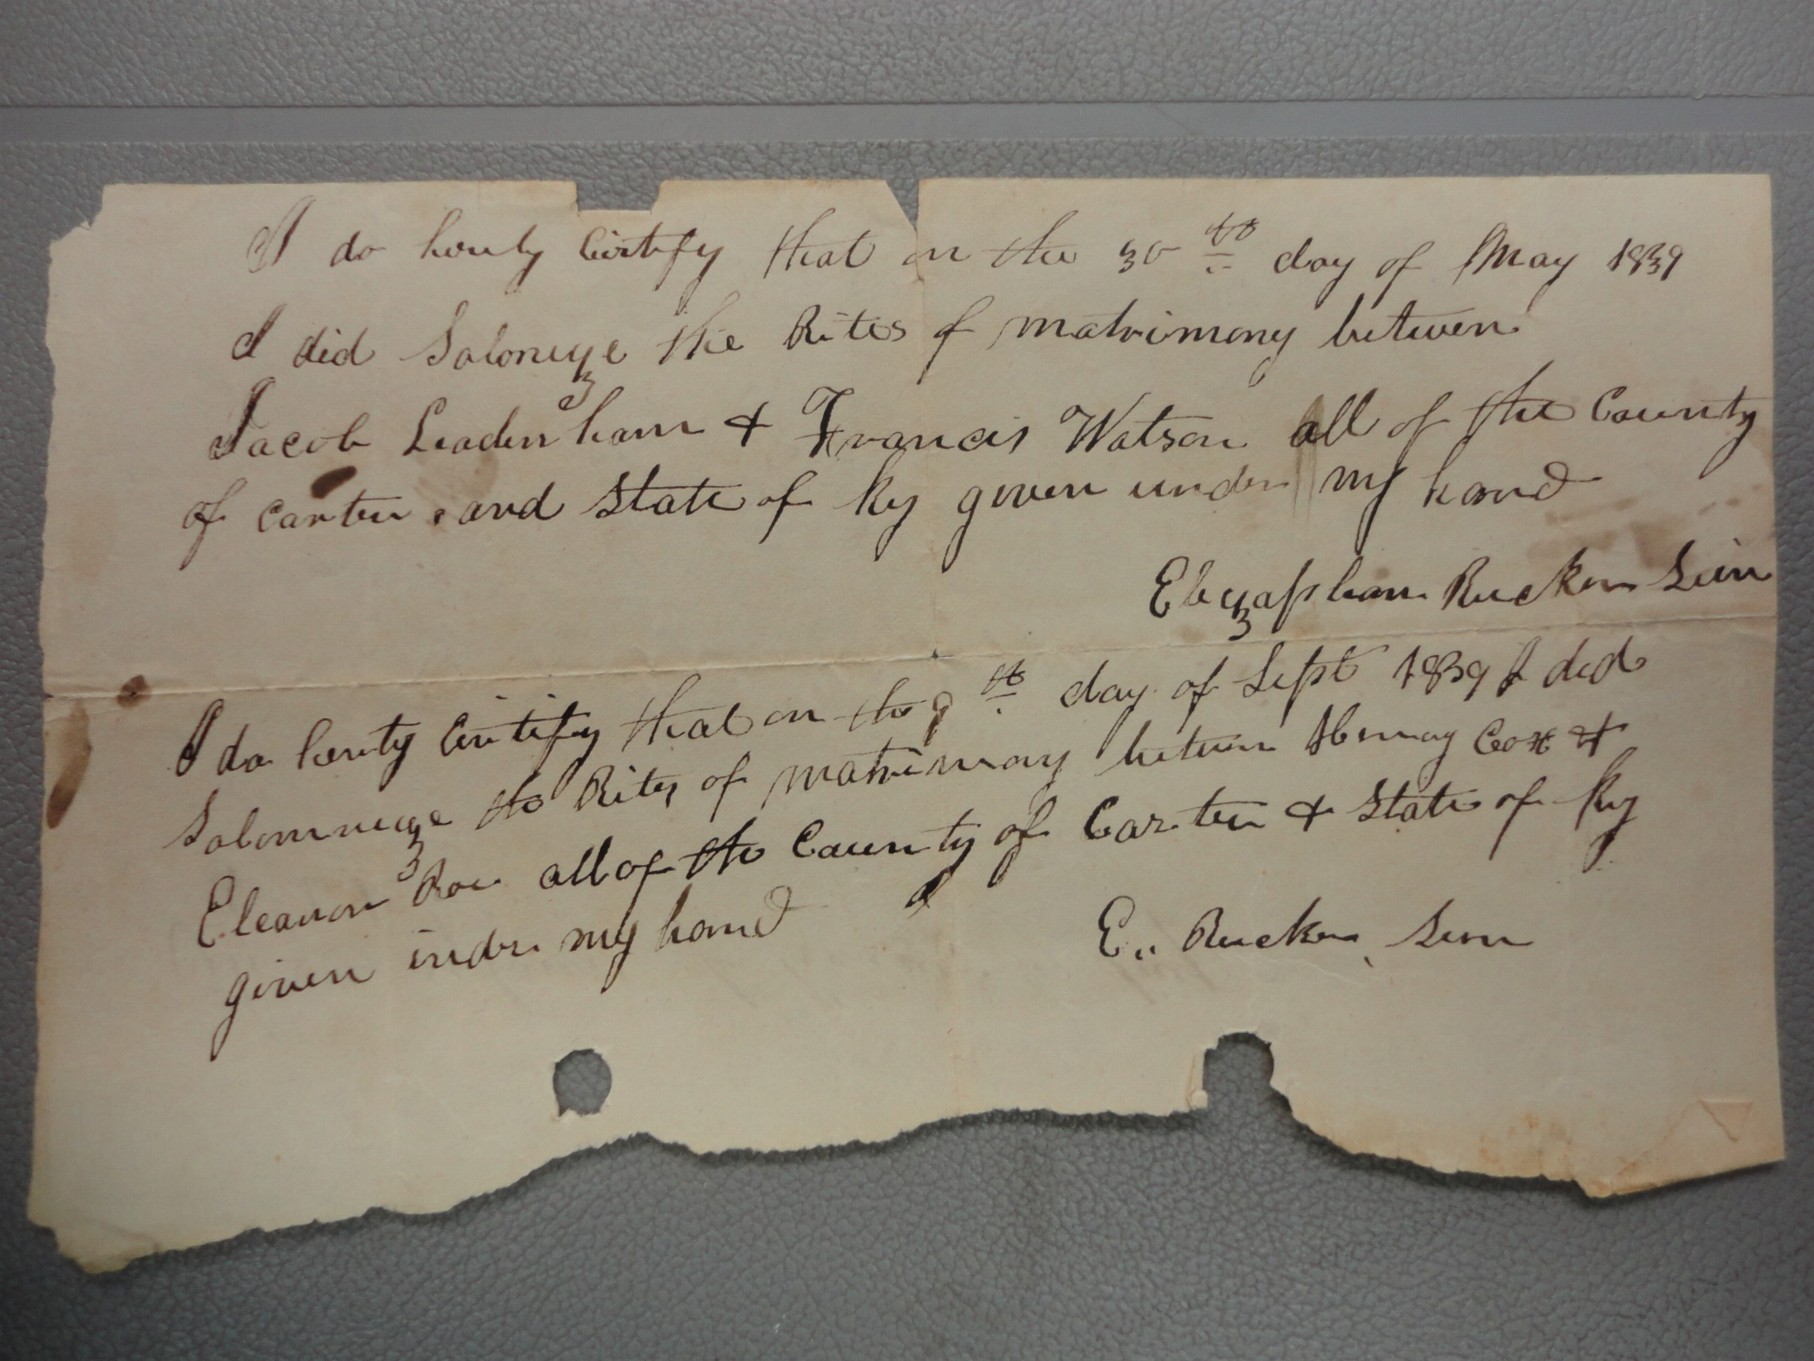 I do herely Certify that on the 30th day of May 1839
I did Soloneze the Rites of matrimony between
Jacob Leadenham & Francis Watson all of the County
of Carter and State of Ky given under my hand
Elyzaphan Rucker Senr
I do herely Certify that on the 9th day of Sept 1839 I did
Solomneze the Rites of matrimony between Henray Cox &
Eleanor Roe all of the County of Carter & State of Ky
given under my hand
E.. Rucker Senr